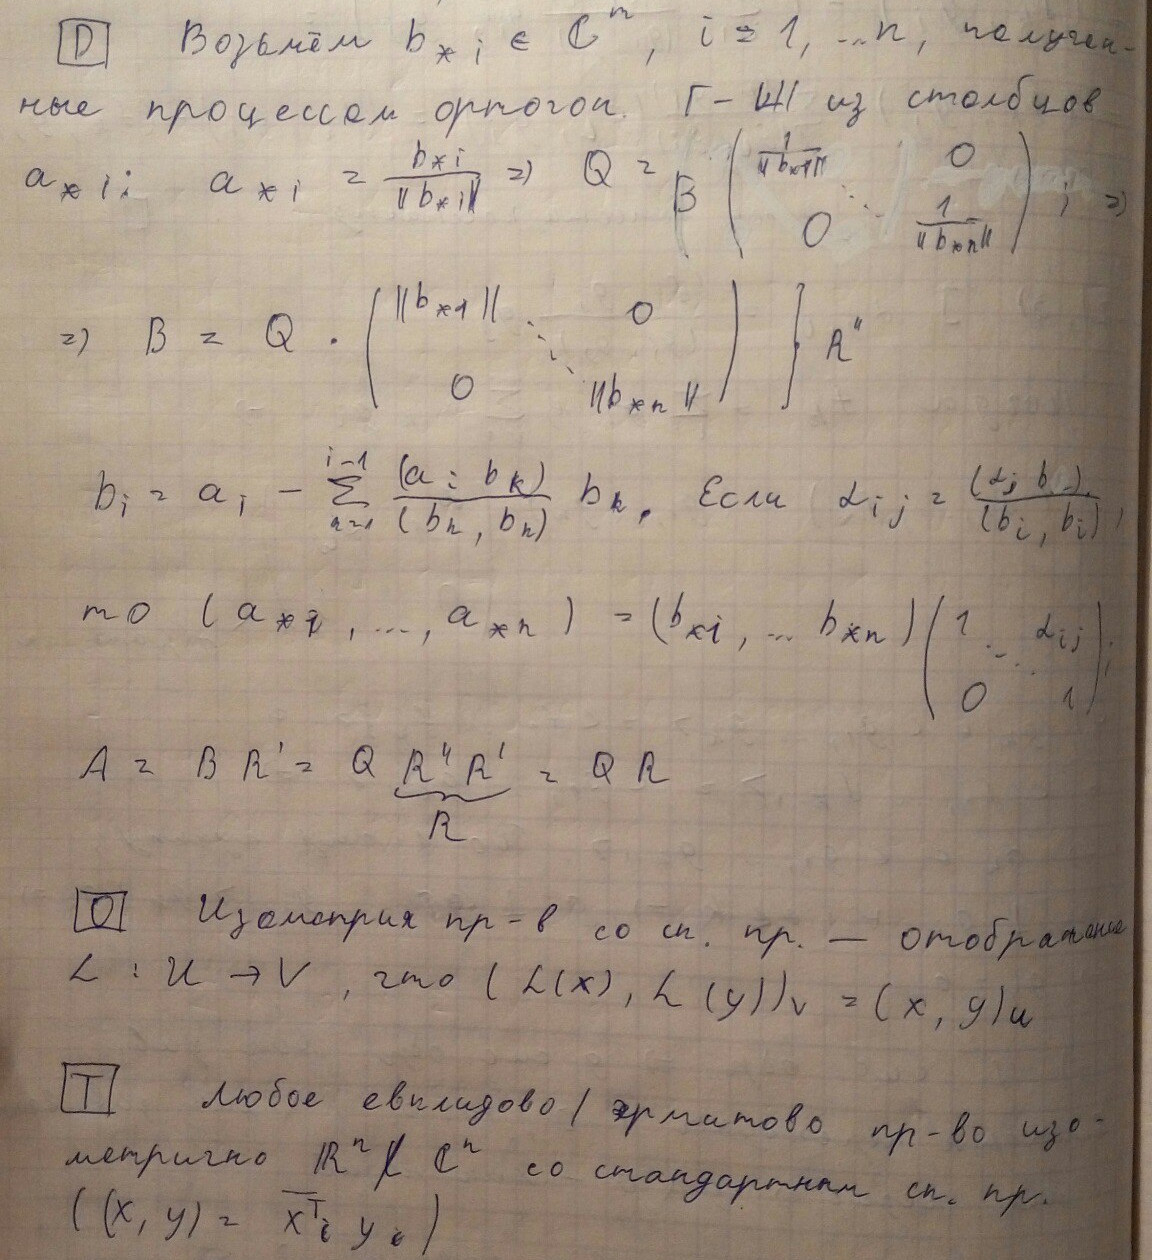 D Возьмём b_{*i} ∈ ℂ^m, i = 1, ...n, получен-
ные процессом ортогон. Г-Ш из столбцов
a_{*i}: a_{*i} = \frac{b_{*i}}{||b_{*i}||} => Q = B \begin{pmatrix} \frac{1}{||b_{*1}||} & & 0 \\ & \ddots & \\ 0 & & \frac{1}{||b_{*n}||} \end{pmatrix}; =>
=> B = Q · \begin{pmatrix} ||b_{*1}|| & & 0 \\ & \ddots & \\ 0 & & ||b_{*n}|| \end{pmatrix} } R''
b_i = a_i - \sum_{k=1}^{i-1} \frac{(a_i b_k)}{(b_k, b_k)} b_k. Если α_{ij} = \frac{(α_j b_i)}{(b_i, b_i)},
то (a_{*1}, ..., a_{*n}) = (b_{*1}, ... b_{*n}) \begin{pmatrix} 1 & & α_{ij} \\ & \ddots & \\ 0 & & 1 \end{pmatrix};
A = B R' = Q \underbrace{R'' R'}_{R} = Q R
O Изометрия пр-в со ск. пр. — отображение
L : U → V, что (L(x), L(y))_V = (x, y)_U
T Любое евклидово / эрмитово пр-во изо-
метрично ℝ^n / ℂ^n со стандартным ск. пр.
((x, y) = \overline{x}^T_i y_i)